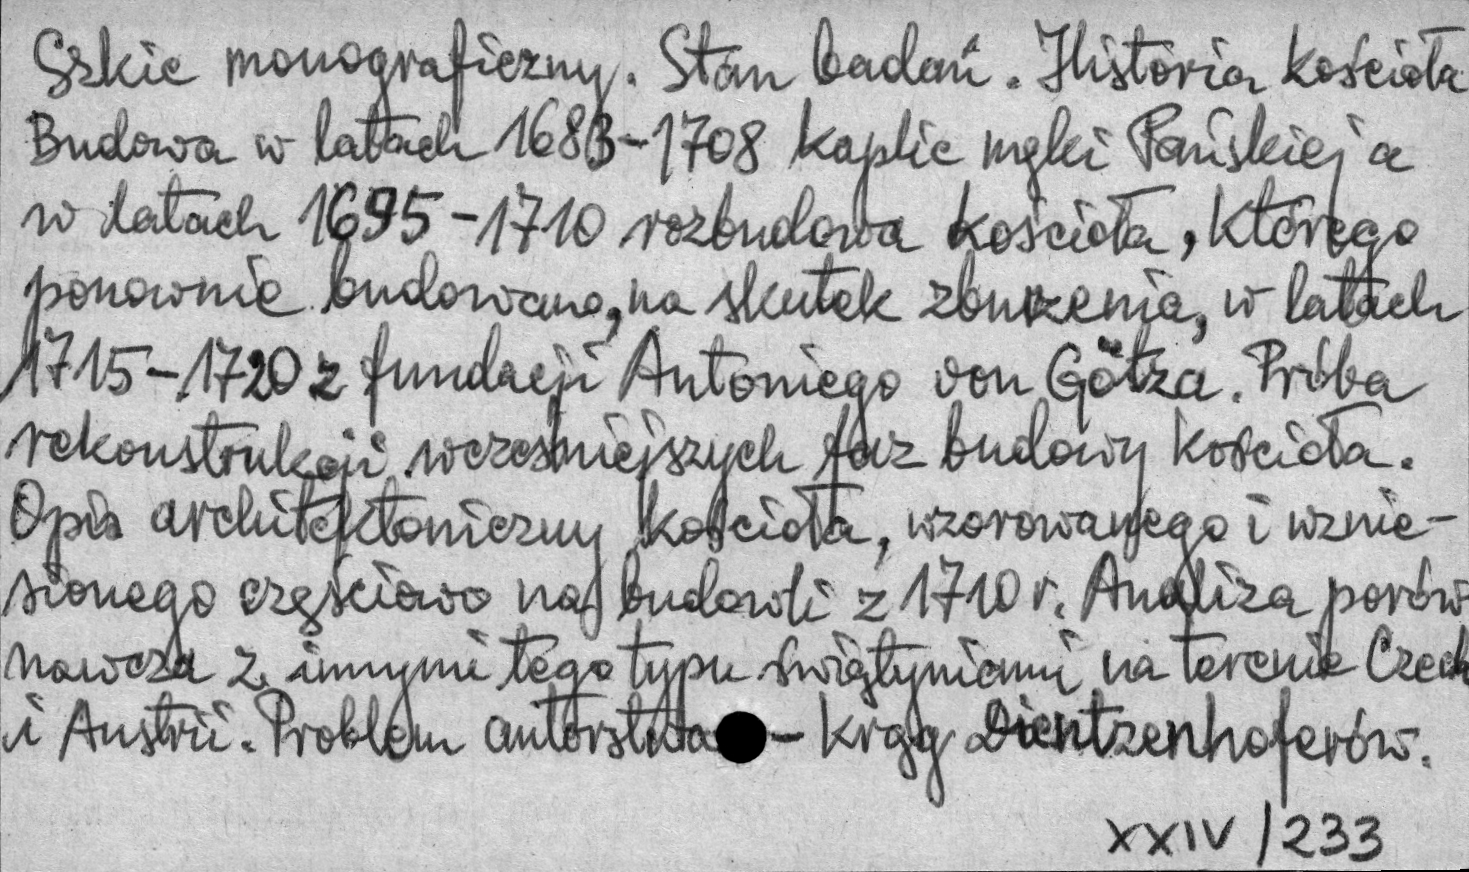 Szkic monograficzny. Stan badań. Historia kościoła
Budowa w latach 1683-1708 kaplic męki Pańskiej a
w latach 1695-1710 rozbudowa kościoła, którego
ponownie budowano, na skutek zburzenia, w latach
1715-1720 z fundacji Antoniego von Götza. Próba
rekonstrukcji wcześniejszych faz budowy kościoła.
Opis architektoniczny kościoła, wzorowanego i wznie-
sionego częściowo na budowli z 1710 r. Analiza porów
nawcza z innymi tego typu świątyniami na terenie Czech
i Austrii. Problem autorstwa - krąg Dientzenhoferów.
XXIV/233